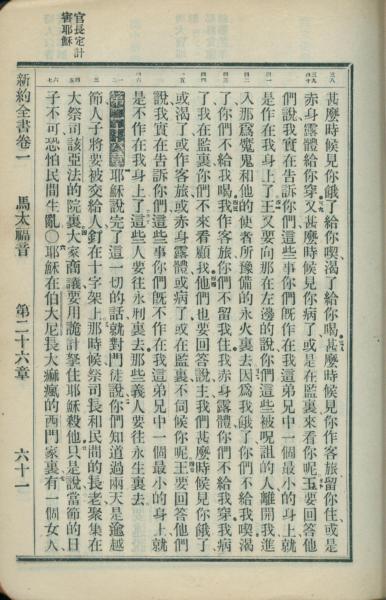 官長定計
害耶穌
甚麽時候見你餓了給你喫渴了給你喝甚麽時候見你作客旅留你住或是
赤身露體給你穿又甚麽時候見你病了或是在監裏來看你呢王要回答他
們說我實在告訴你們這些事你們旣作在我這弟兄中一個最小的身上就
是作在我身上了王又要向那在左邊的說你們這些被呪詛的人離開我進
入那爲魔鬼和他的使者所豫備的永火裏去因爲我餓了你們不給我喫渴
了你們不給我喝我作客旅你們不留我住我赤身露體你們不給我穿我病
了我在監裏你們不來看顧我他們也要回答說主我們甚麽時候見你餓了
或渴了或作客旅或赤身露體或病了或在監裏不伺候你呢王要回答他們
說我實在告訴你們這些事你們旣不作在我這弟兄中一個最小的身上就
是不作在我身上了這些人要往永刑裏去那些義人要往永生裏去
第二十六章 耶穌說完了這一切的話就對門徒說你們知道過兩天是逾越
節人子將要被交給人釘在十字架上那時候祭司長和民間的長老聚集在
大祭司該亞法的院裏大家商議要用詭計拏住耶穌殺他只是說當節的日
子不可恐怕民間生亂〇耶穌在伯大尼長大痲瘋的西門家裏有一個女人
新約全書卷一 馬太福音 第二十六章 六十一